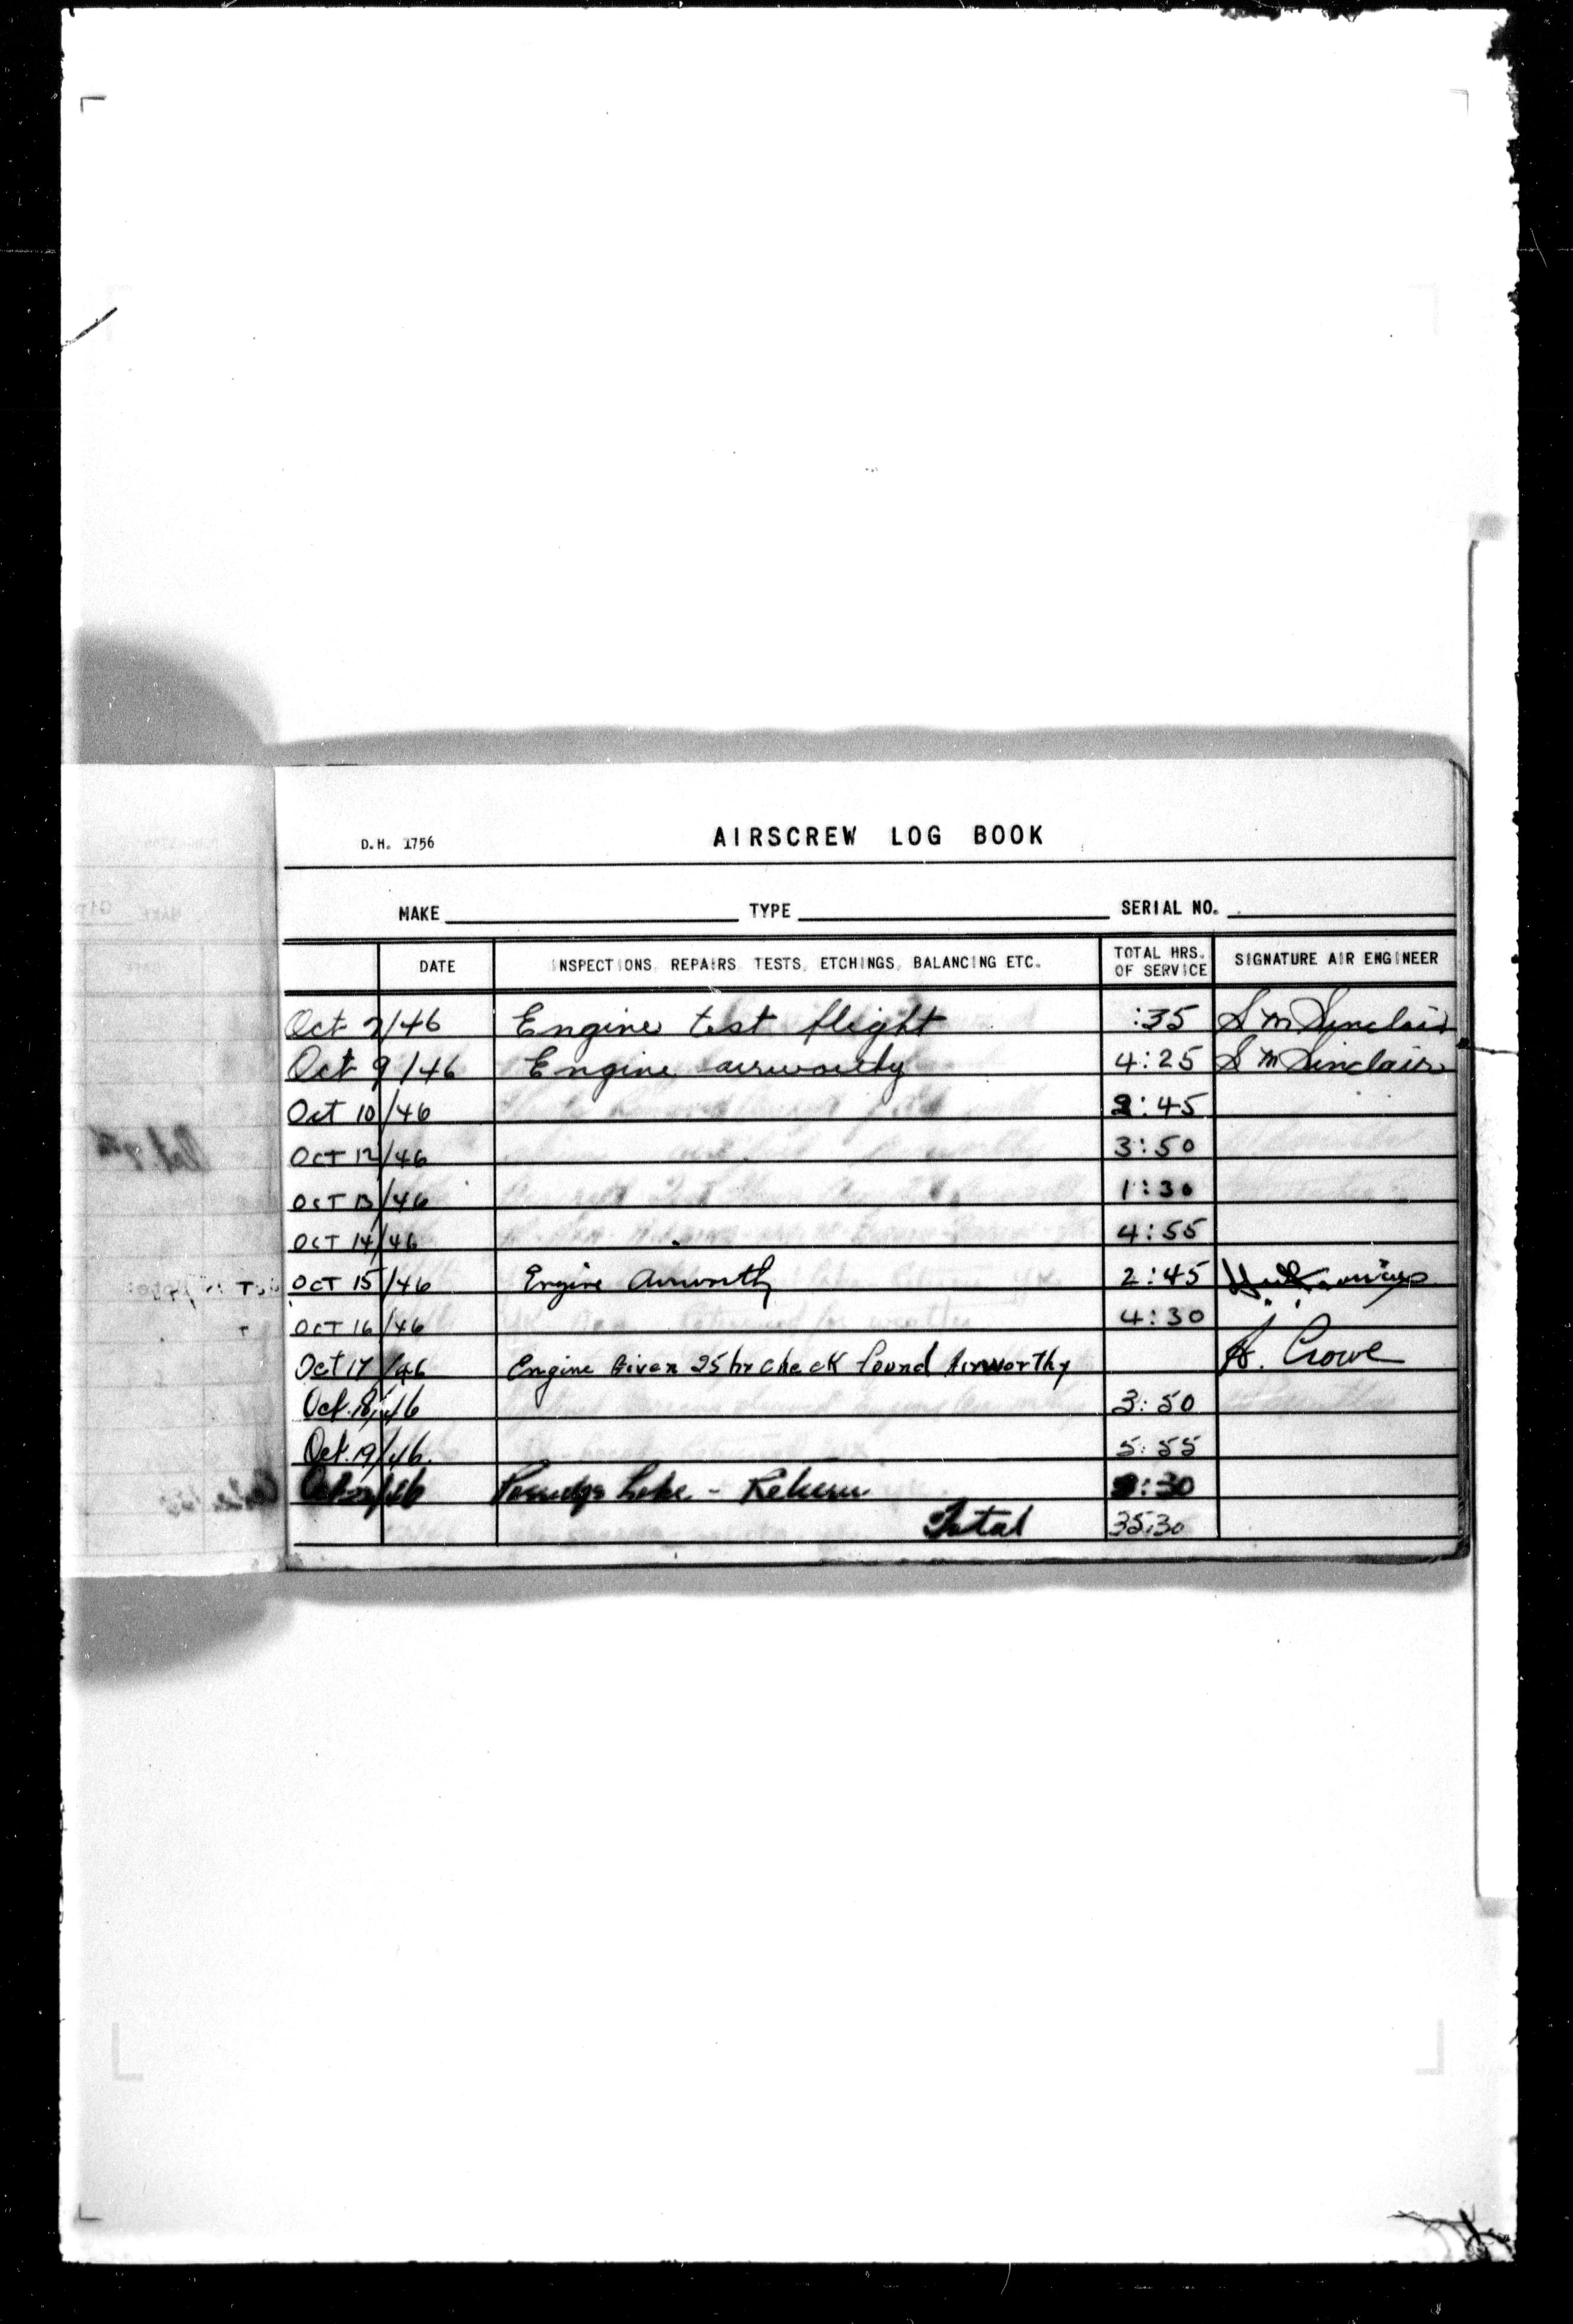 D.H. 1756 AIRSCREW LOG BOOK
MAKE TYPE SERIAL NO.
DATE INSPECTIONS, REPAIRS, TESTS, ETCHINGS, BALANCING ETC. TOTAL HRS. OF SERVICE SIGNATURE AIR ENGINEER
Oct 7/46 Engine test flight :35 S M Sinclair
Oct 9/46 Engine airworthy 4:25 S M Sinclair
Oct 10/46 :45
OCT 12/46 3:50
OCT 13/46 1:30
OCT 14/46 4:55
OCT 15/46 Engine Airworthy 2:45
OCT 16/46 4:30
Oct 17/46 Engine Given 25 hr check found Airworthy A. Crowe
Oct. 18/46 3:50
Oct. 19/46. 5:55
Lake - Return :30
Total 35:30